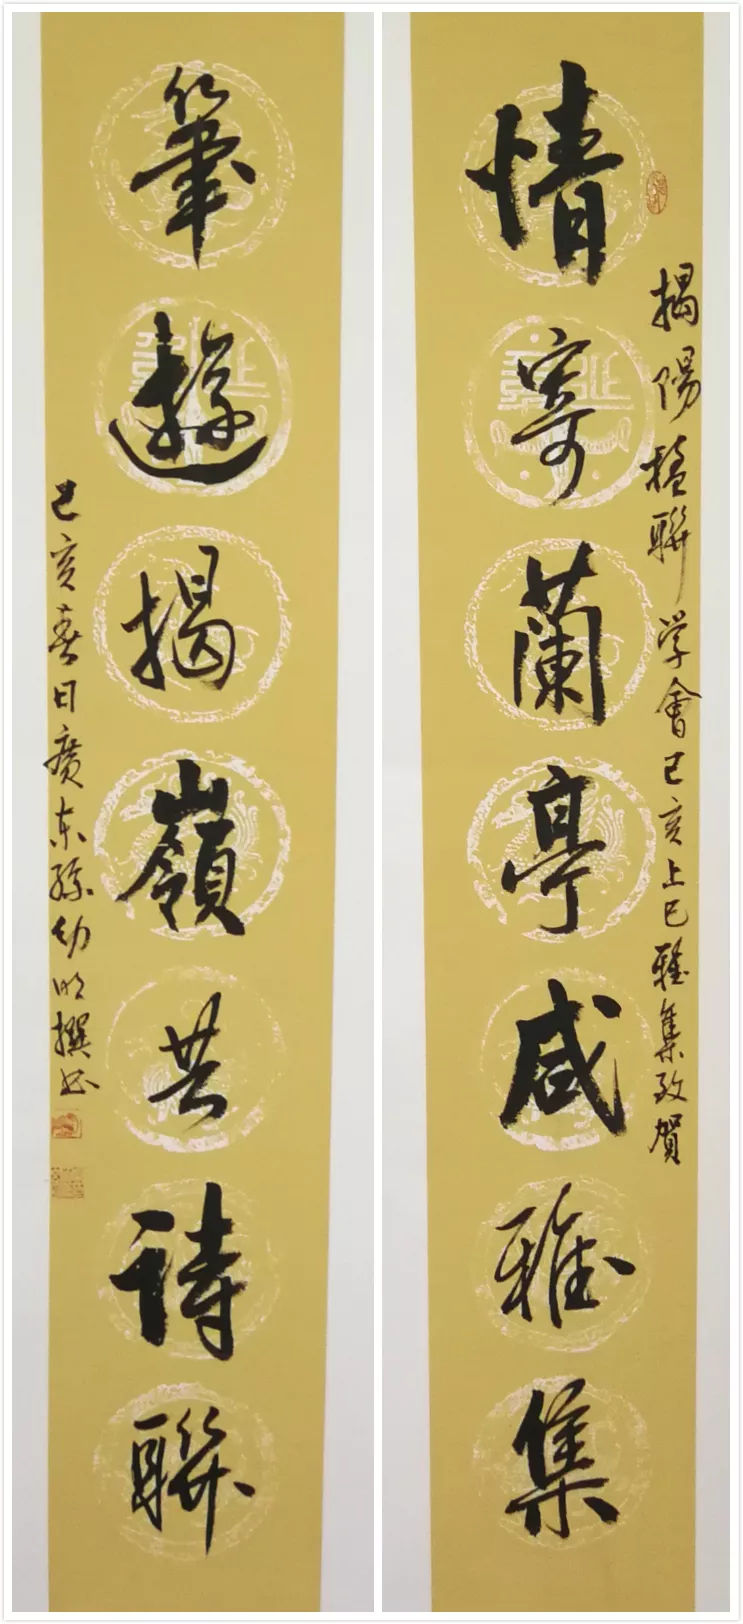 揭陽楹聯学會己亥上巳雅集致賀
情寄蘭亭咸雅集
筆遊揭嶺共詩聯
己亥春日廣东孫幼明撰书